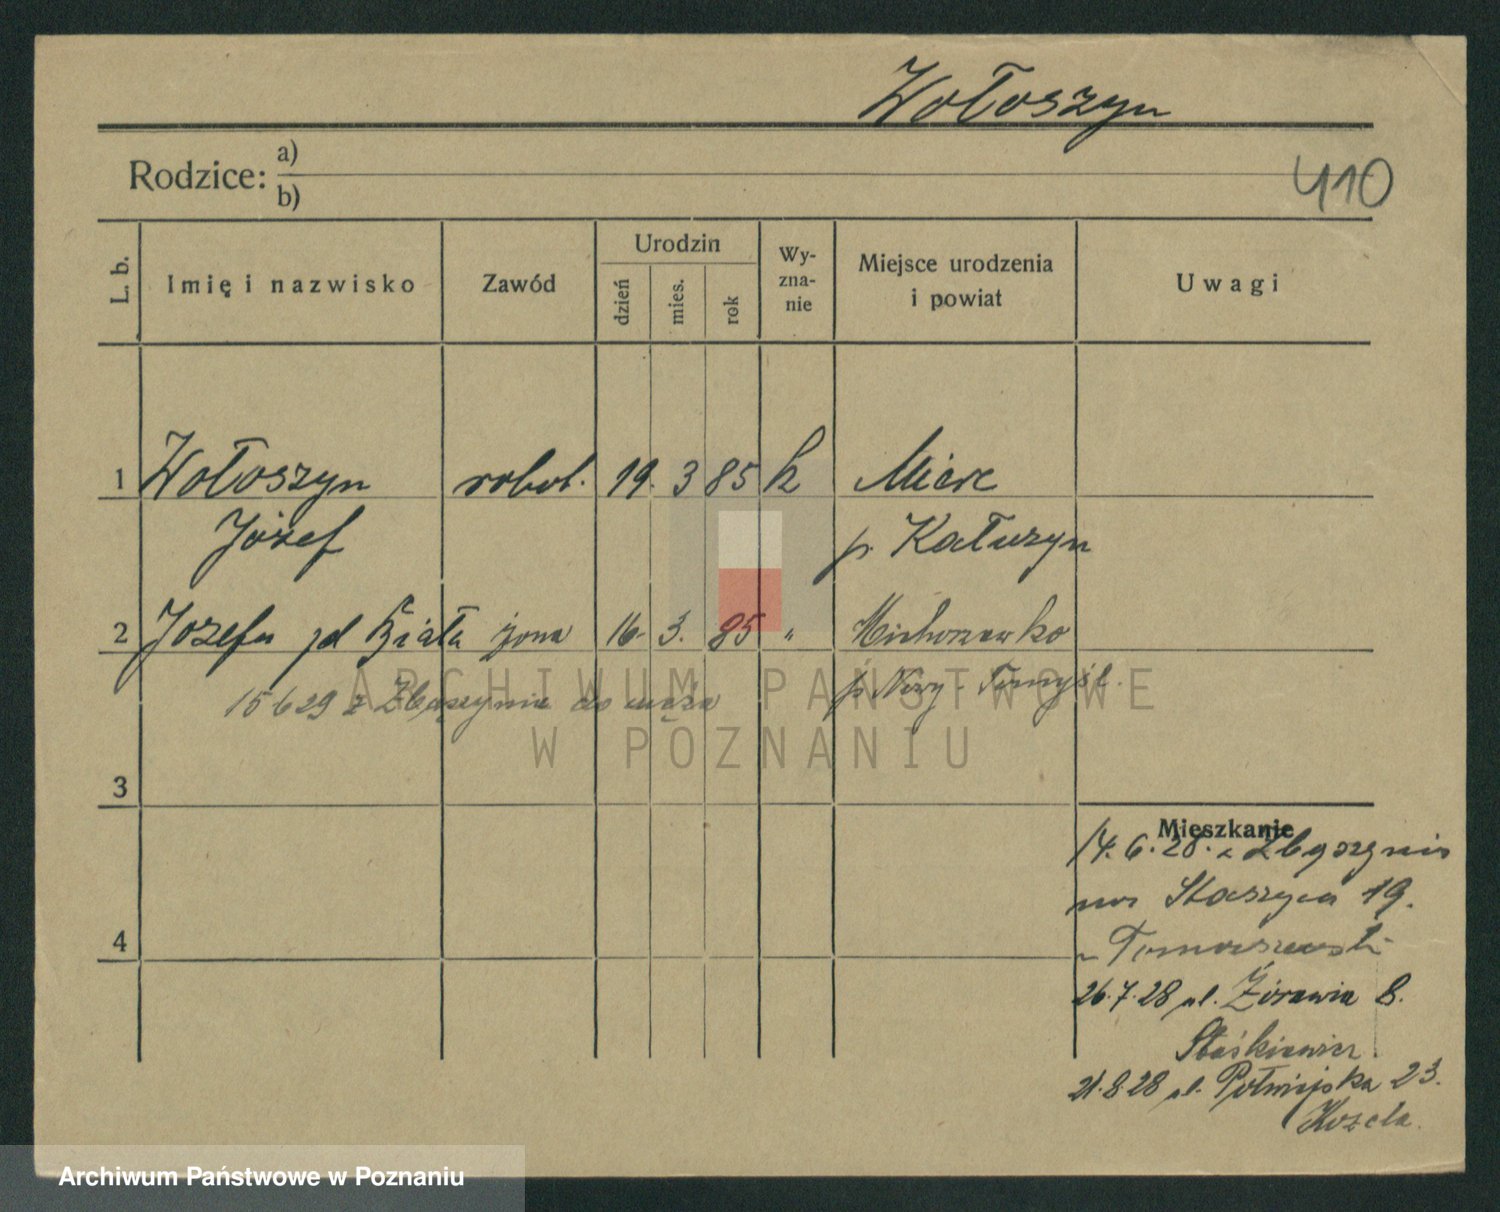 Wołoszyn
Rodzice: a)
b)
410
L. b. Imię i nazwisko Zawód Urodzin dzień mies. rok Wy-zna-nie Miejsce urodzenia i powiat Uwagi
1 Wołoszyn robot. 19. 3 85 k
Józef p. Kałuszyn
2 Józefa zd Biała żona 16. 3. 85 "
15 6 29 z Zbąszynia do męża p. Nowy-Tomyśl.
ARCHIWUM PAŃSTWOWE
W POZNANIU
3
Mieszkanie
14.6.28. z Zbąszynia
Staszyca 19.
4
26.7.28 ul. Żórawia 8.
21.8.28 ul. 23.
Archiwum Państwowe w Poznaniu